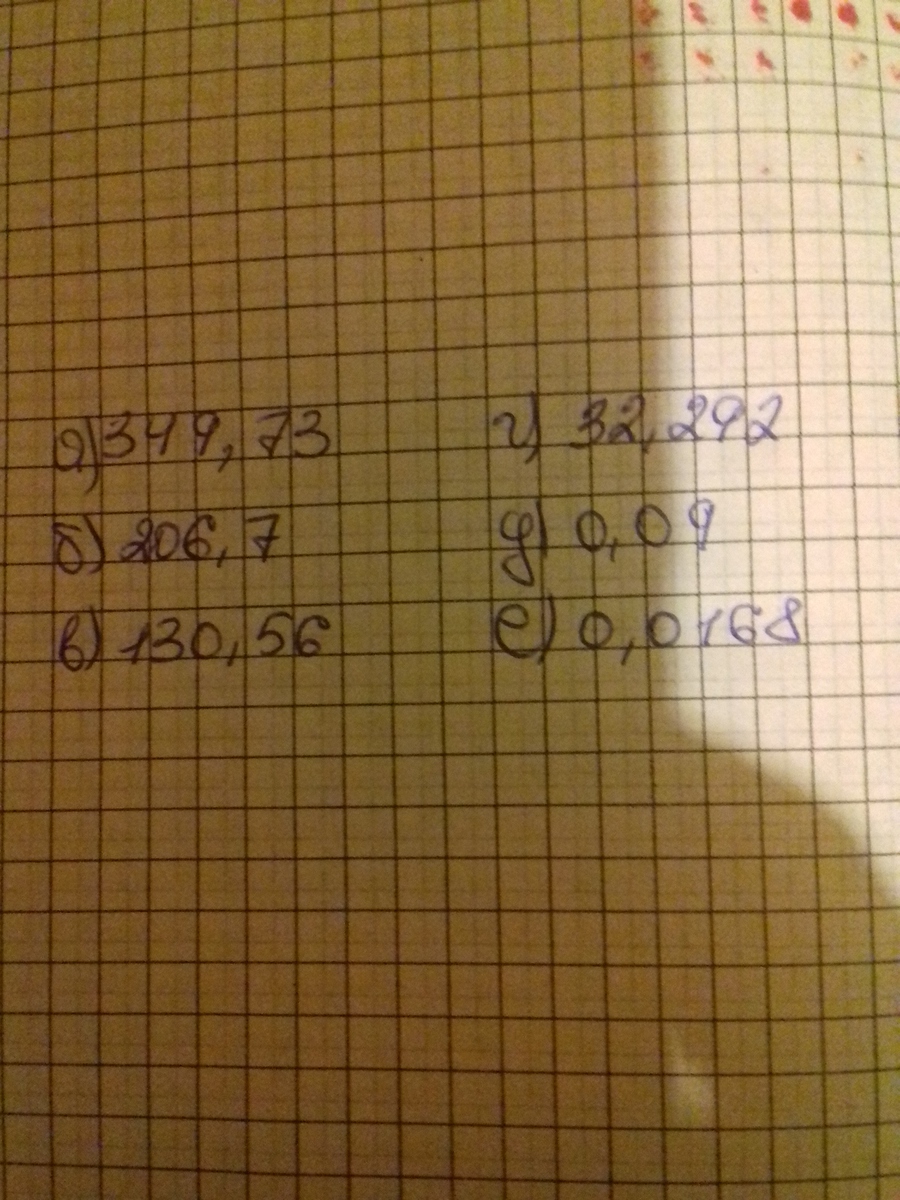 а) 349,73
б) 206,7
в) 130,56
г) 32,292
д) 0,09
е) 0,0168